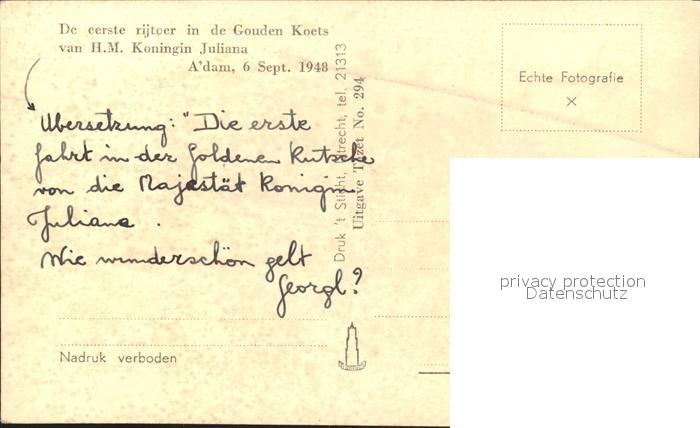 De eerste rijtoer in de Gouden Koets
van H.M. Koningin Juliana
A'dam, 6 Sept. 1948
Echte Fotografie
Übersetzung: "Die erste
Fahrt in der Goldenen Kutsche
von die Majestät Konigin
Juliana .
Wie wunderschön gelt
Georgl?
Druk 't Sticht, Utrecht, tel. 21313
Uitgave No. 294
privacy protection
Datenschutz
Nadruk verboden